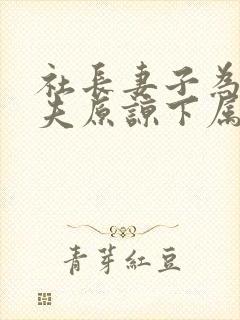 社長妻子為
夫原諒下属
青芽紅豆